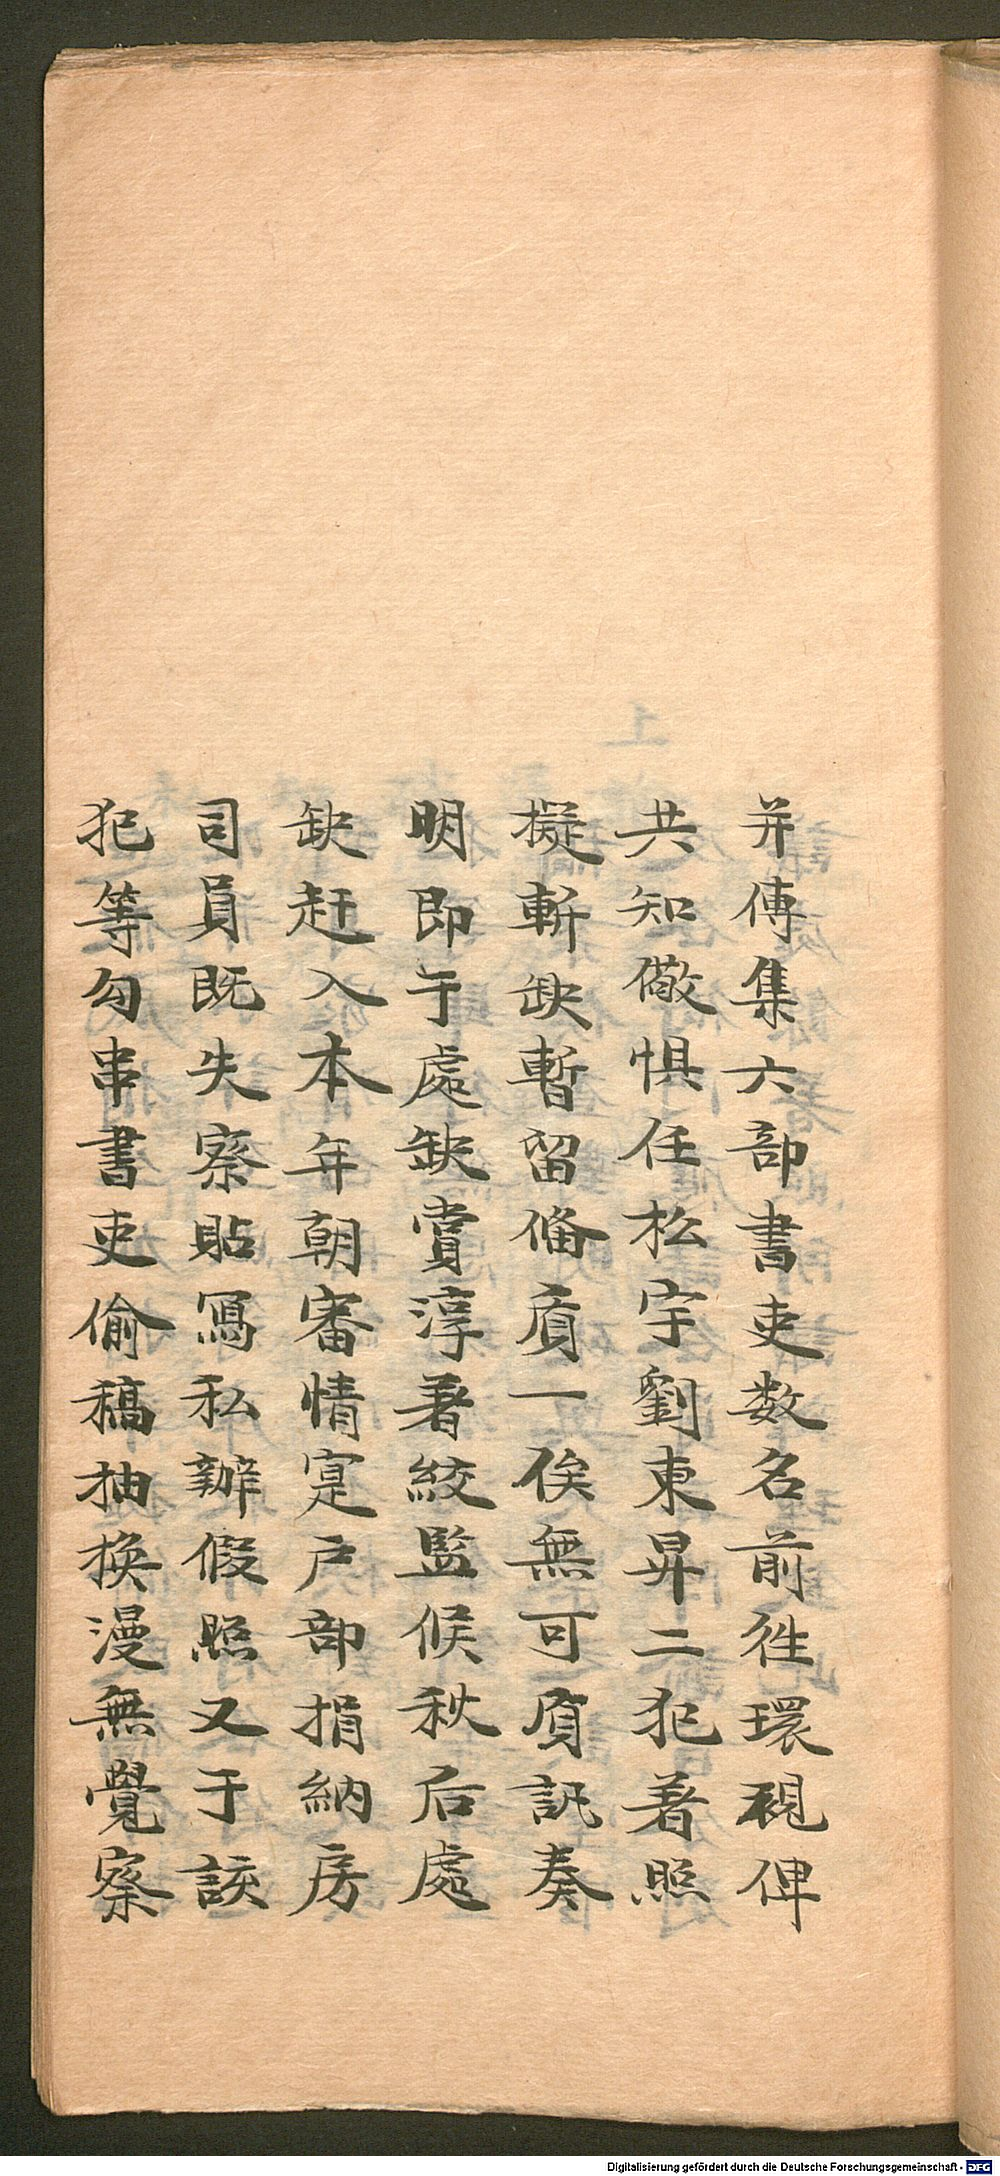 并傳集六部書吏数名前徃環視俾
共知儆惧任松宇劉東昇二犯著照
擬斬缺暫留俻質一俟無可質訊奏
明即于處缺賞淳著絞監候秋后處
缺赶入本年朝審情寔户部捐納房
司員既失察貼寫私辦假照又于該
犯等勾串書吏偷稿抽换漫無覺察
Digitalisierung gefördert durch die Deutsche Forschungsgemeinschaft - DFG